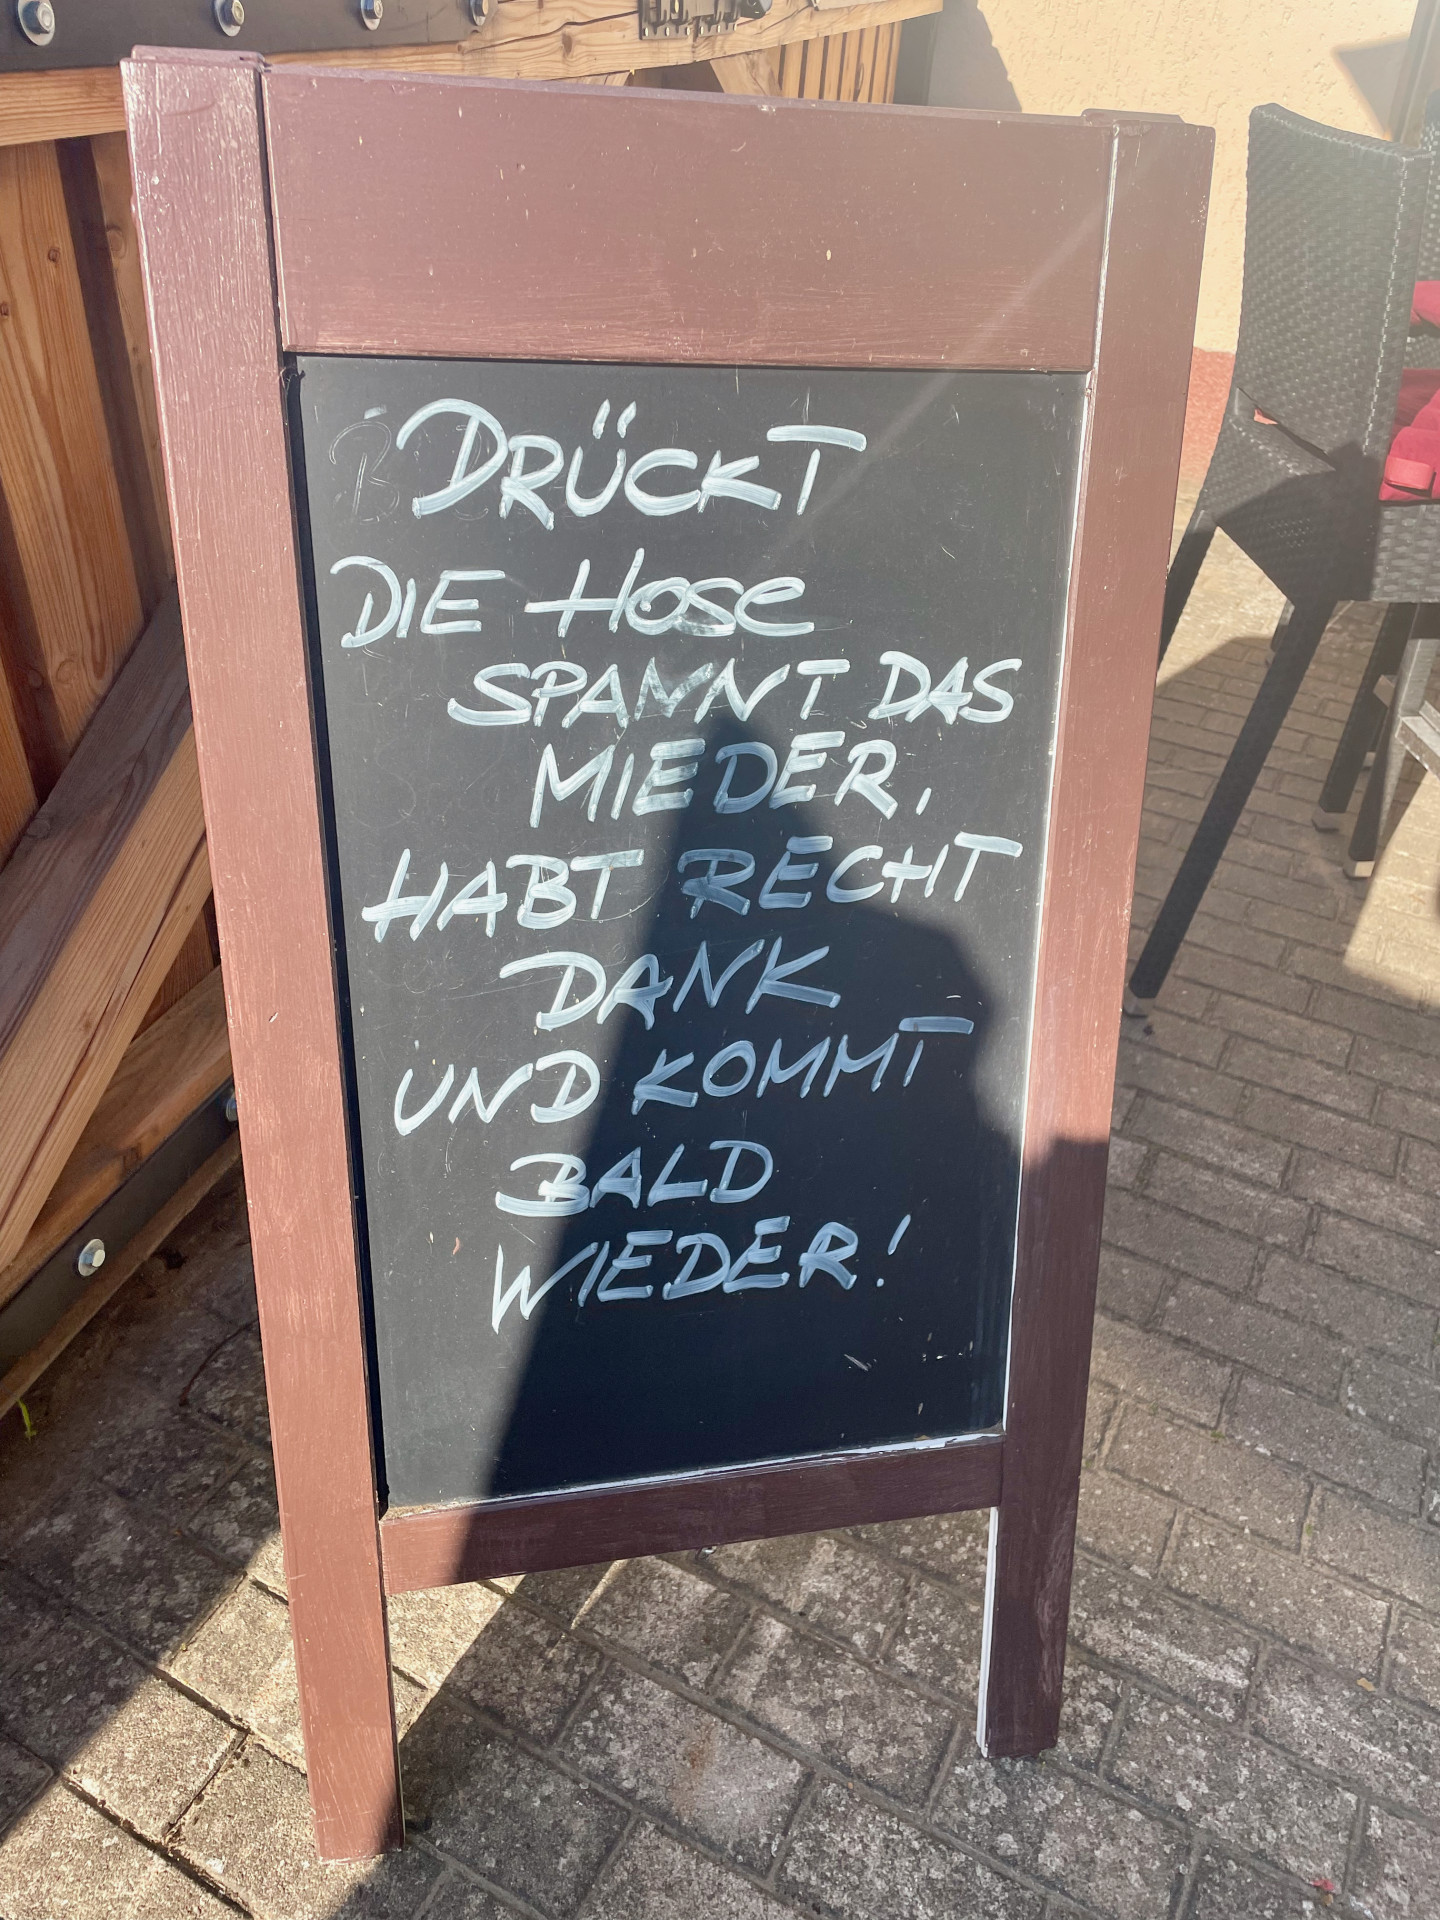 DRÜCKT
DIE HOSE
SPANNT DAS
MIEDER,
HABT RECHT
DANK
UND KOMMT
BALD
WIEDER!